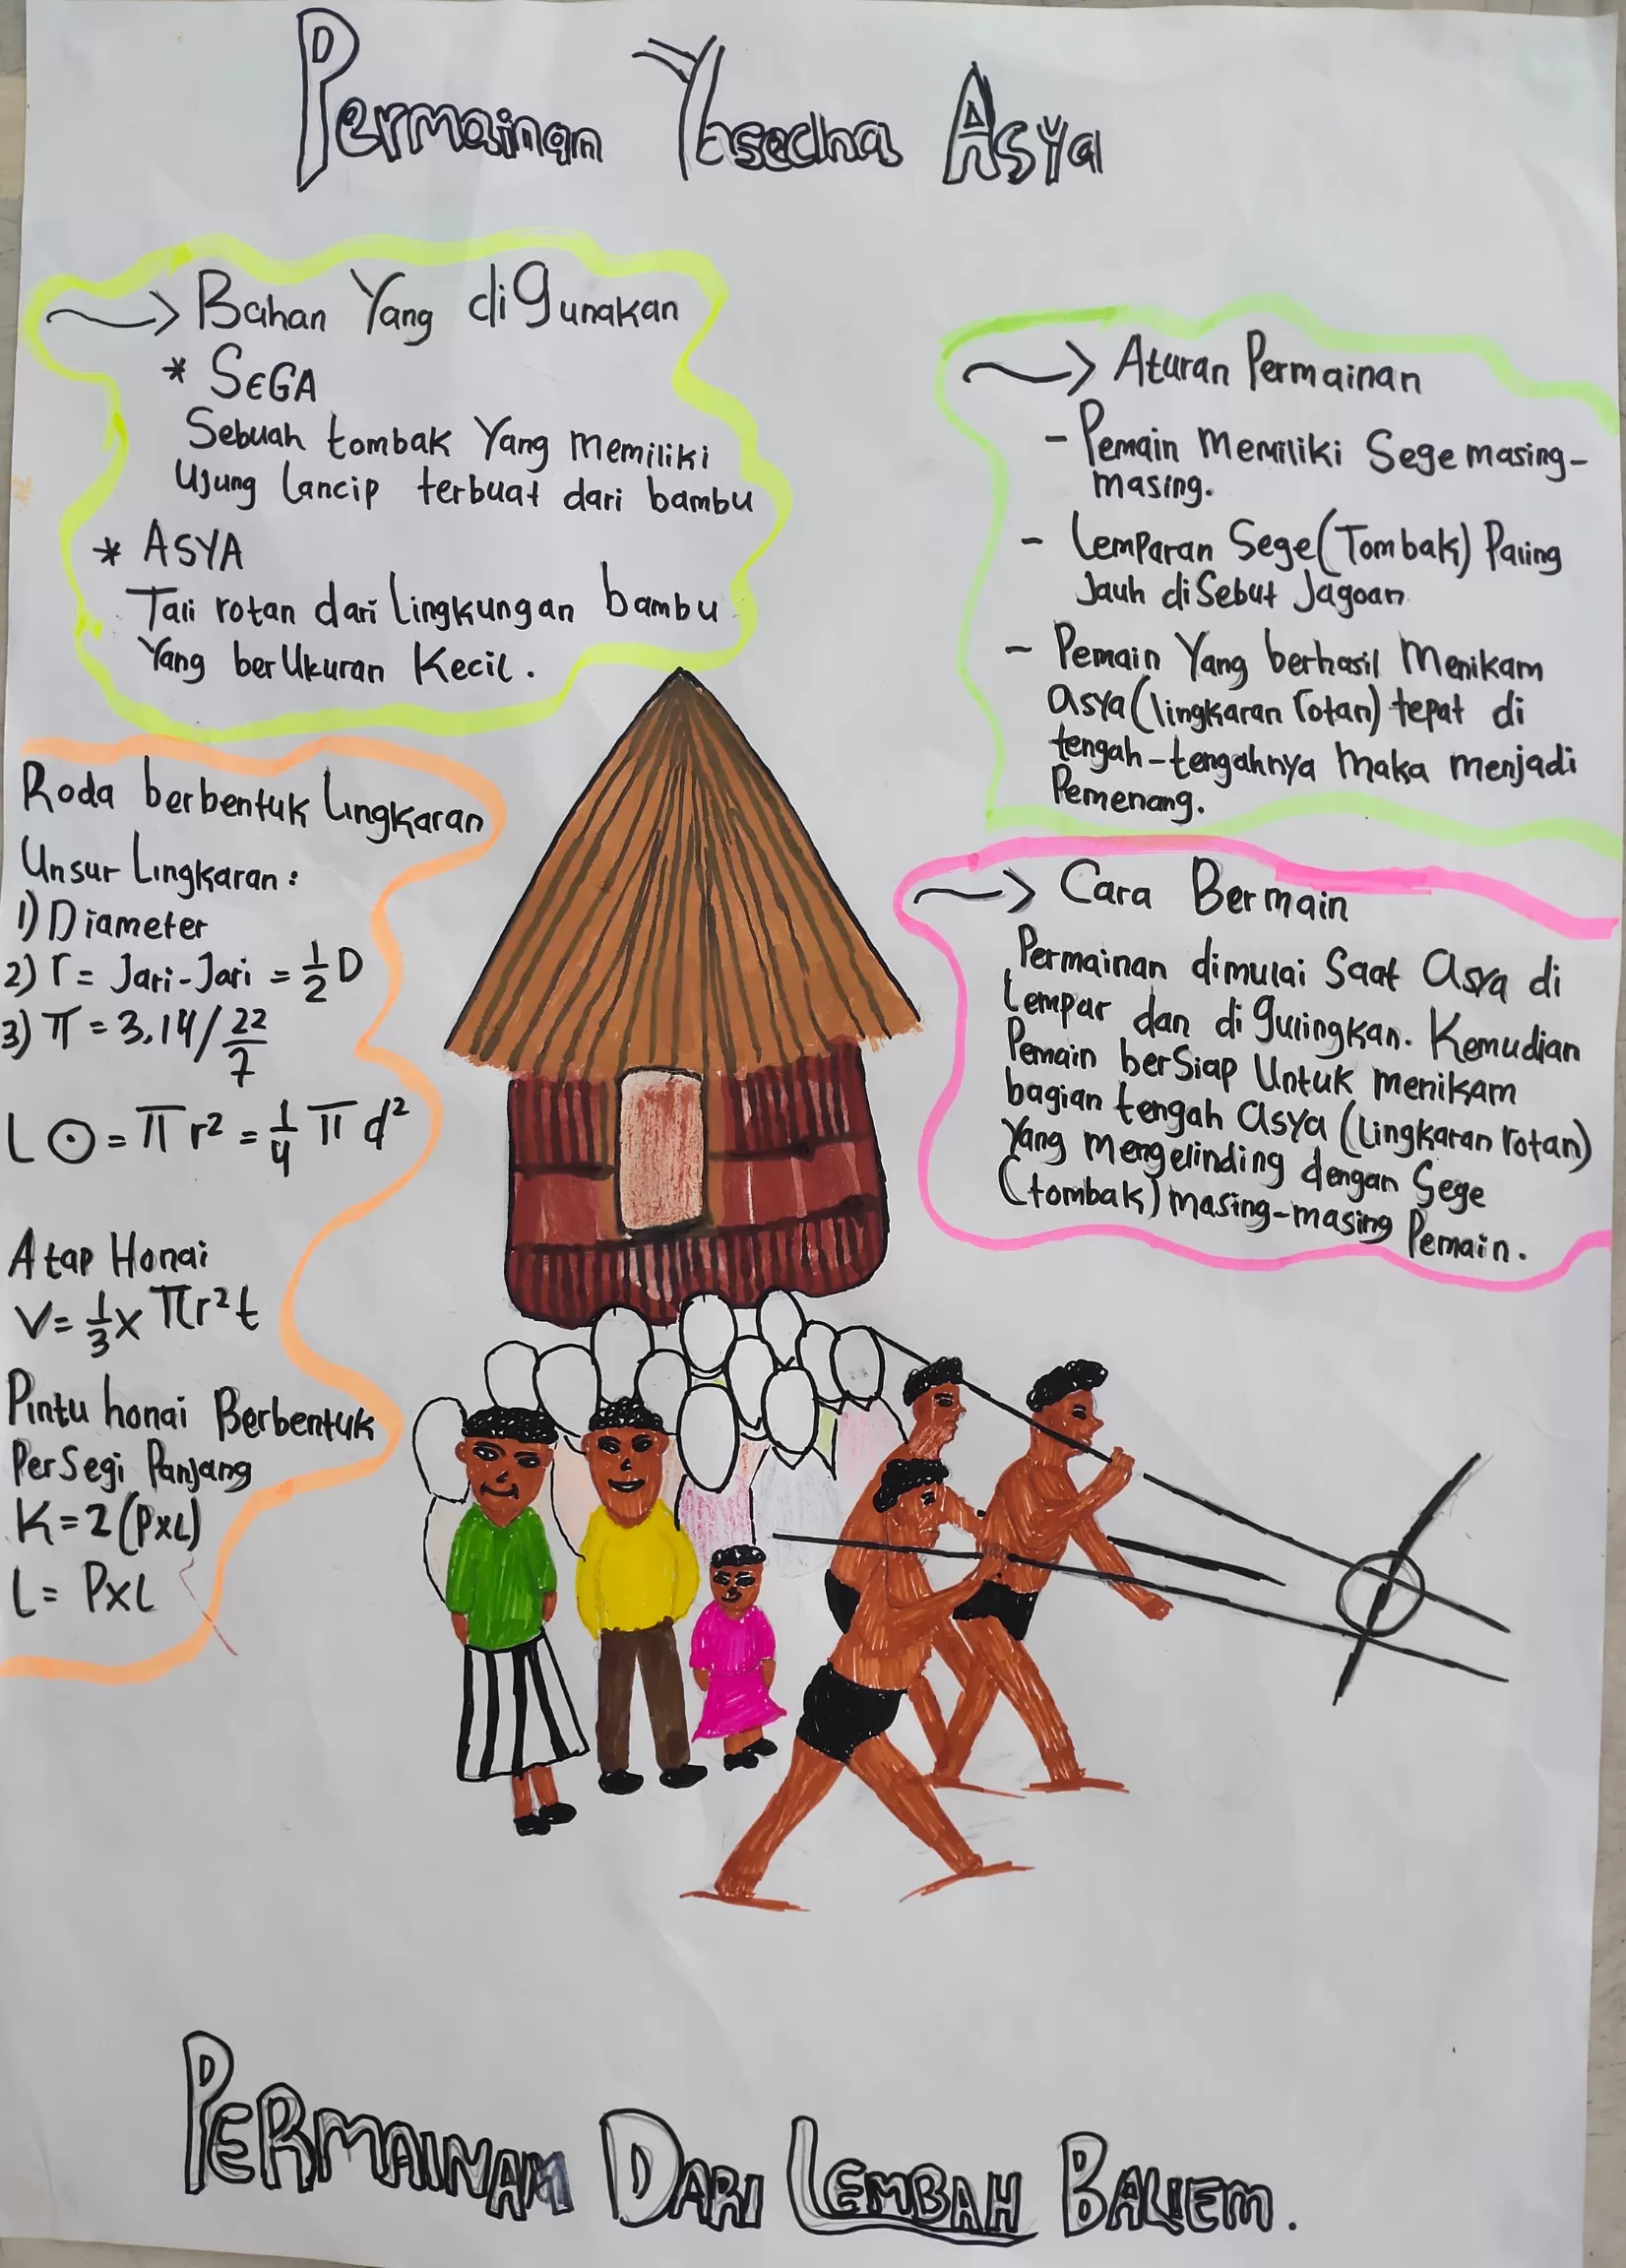 Permainan Yasedha Asya
Bahan Yang diGunakan
* SEGA
Sebuah tombak Yang memiliki
Ujung lancip terbuat dari bambu
* ASYA
Tali rotan dari lingkungan bambu
Yang berUkuran Kecil.
Roda berbentuk Lingkaran
Unsur Lingkaran :
1) Diameter
2) r = Jari-Jari = 1/2 D
3) π = 3,14 / 22/7
L ⊙ = π r² = 1/4 π d²
Atap Honai
V = 1/3 x πr²t
Pintu honai Berbentuk
PerSegi Panjang
K = 2 (PxL)
L = PxL
Aturan Permainan
- Pemain Memiliki Sege masing-
masing.
- Lemparan Sege (Tombak) Paling
Jauh diSebut Jagoan
- Pemain Yang berhasil Menikam
asya (lingkaran rotan) tepat di
tengah-tengahnya maka menjadi
Pemenang.
Cara Bermain
Permainan dimulai Saat Asya di
lempar dan di Gulingkan. Kemudian
Pemain berSiap Untuk menikam
bagian tengah asya (lingkaran rotan)
Yang mengelinding dengan Sege
(tombak) masing-masing Pemain.
PERMAINAN DARI LEMBAH BALIEM.